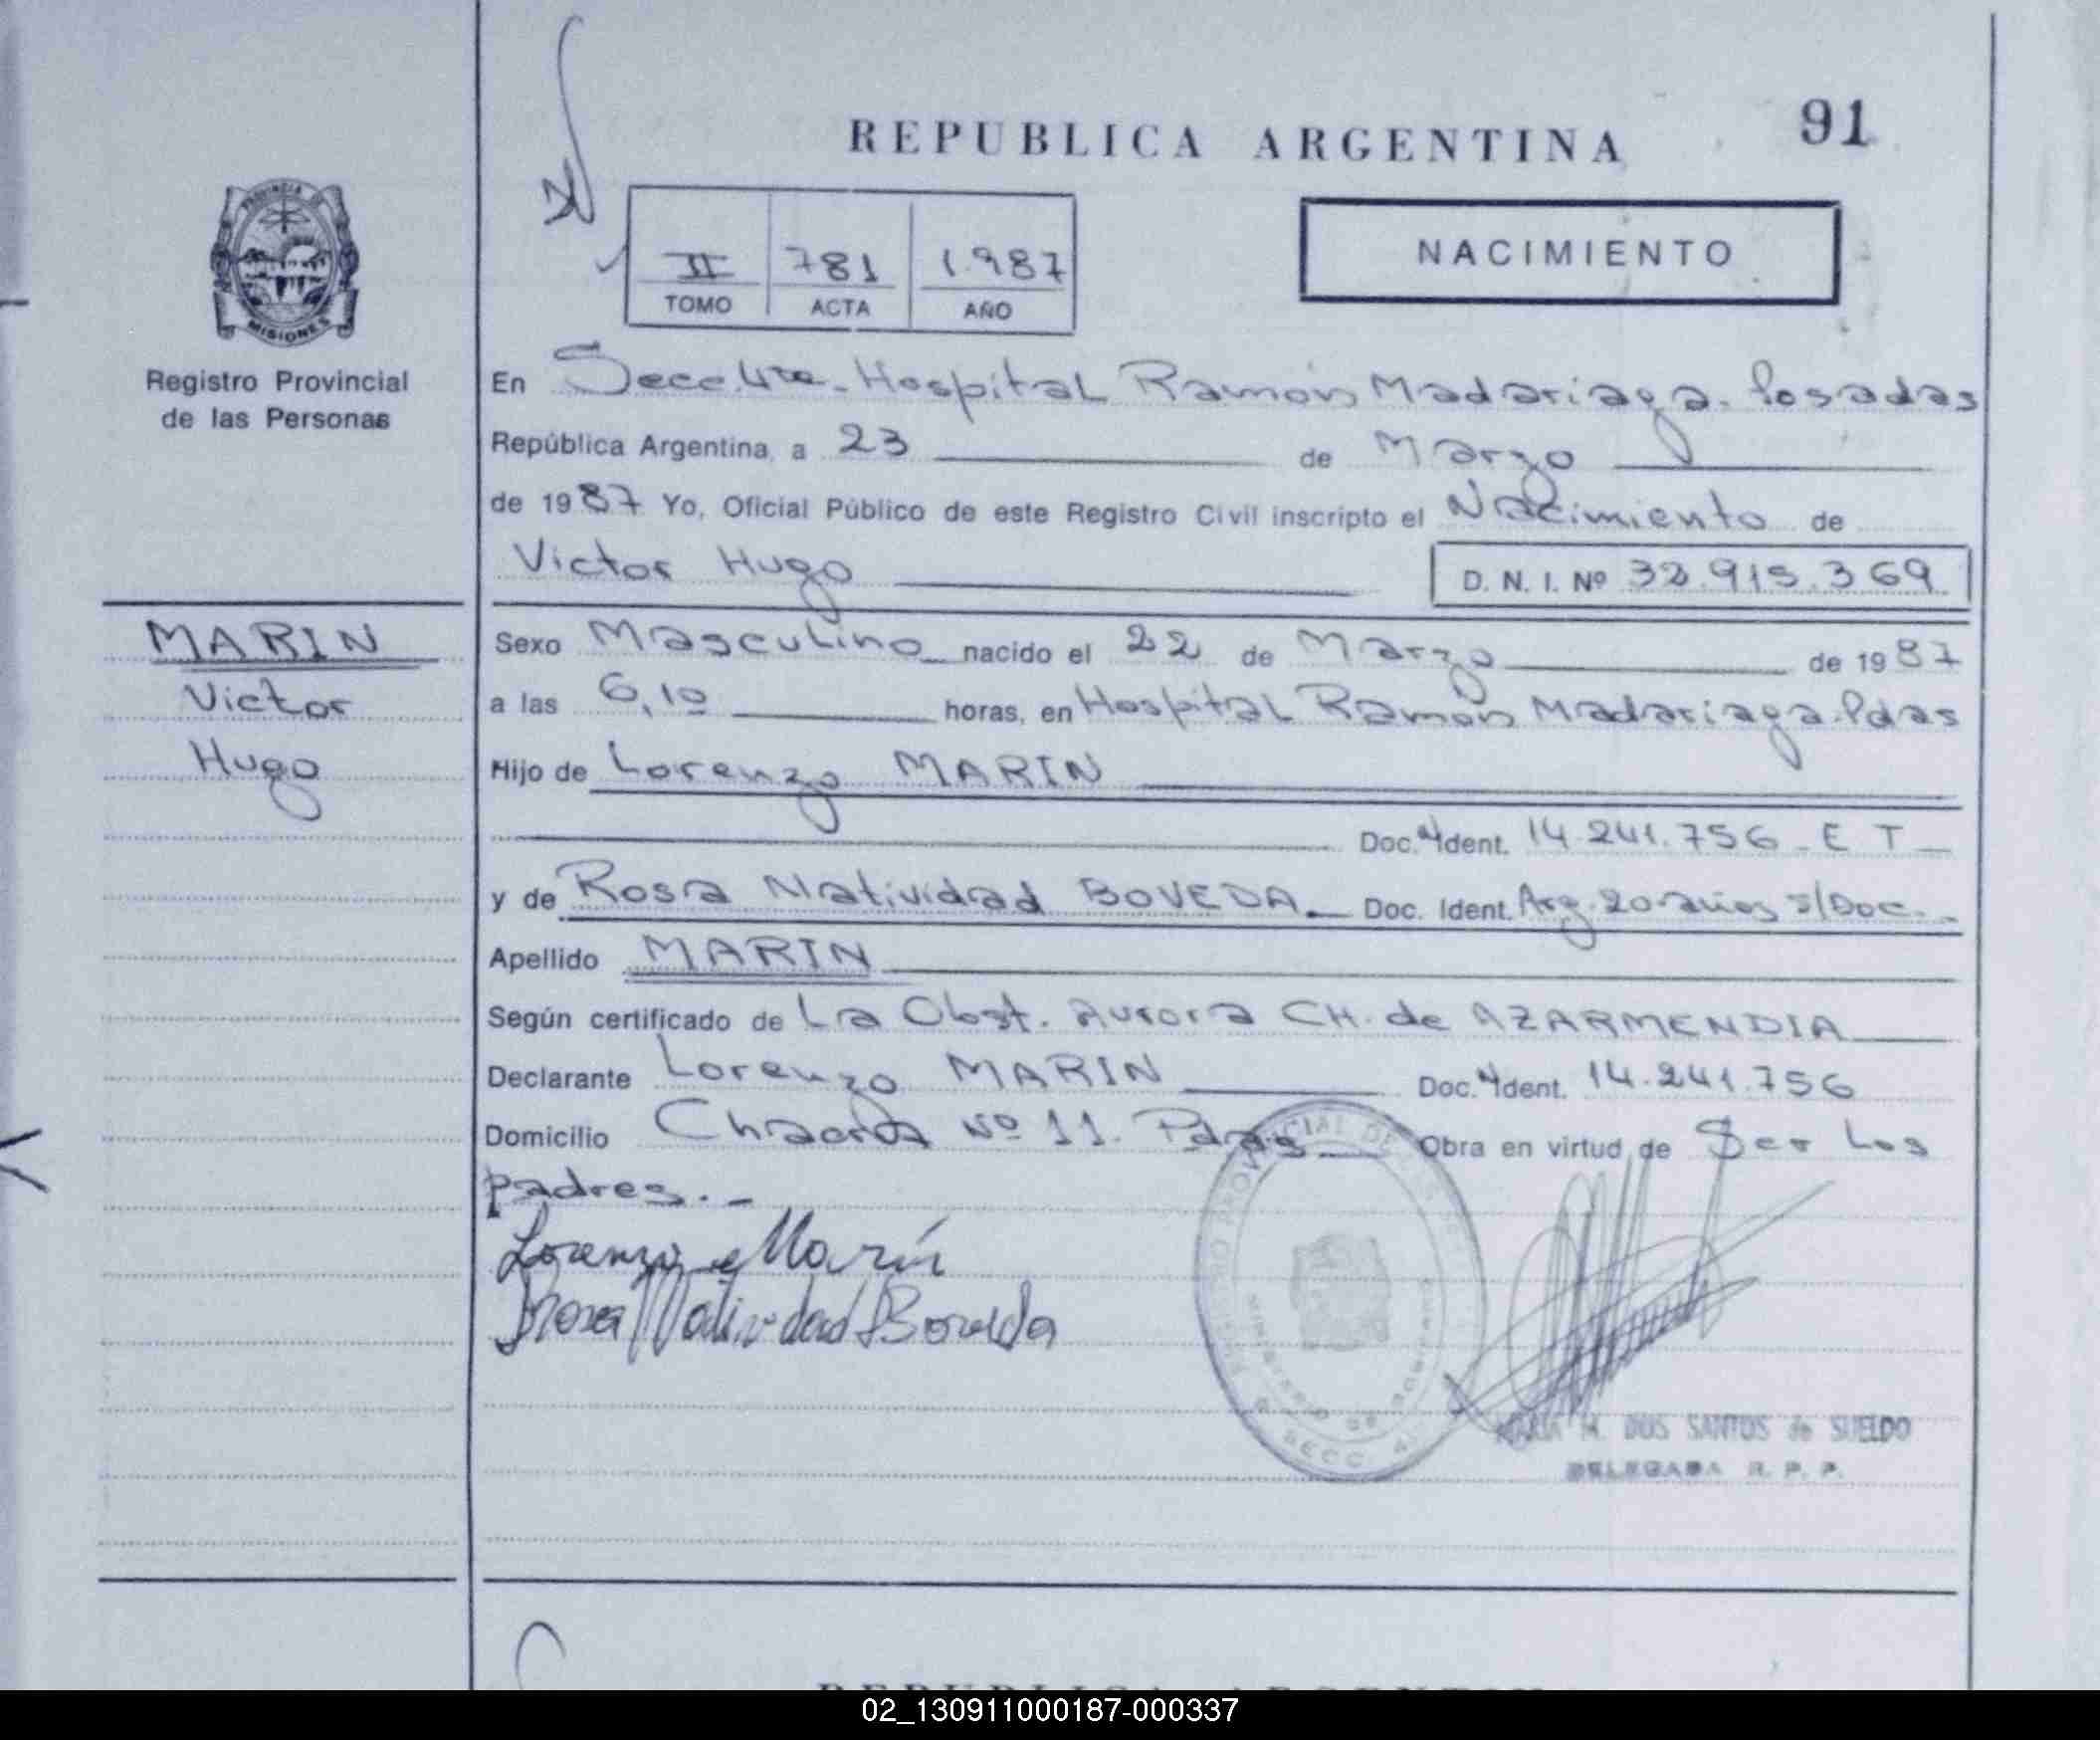 91
REPUBLICA ARGENTINA
II 781 1.987
TOMO ACTA AÑO
NACIMIENTO
PROVINCIA DE
MISIONES
Registro Provincial
de las Personas
En Secc. 4ta - Hospital Ramón Madariaga - Posadas
República Argentina, a 23 de Marzo
de 1987 Yo, Oficial Público de este Registro Civil inscripto el Nacimiento de
Victor Hugo D. N. I. Nº 32.915.369
MARIN
Victor
Hugo
Sexo Masculino nacido el 22 de Marzo de 1987
a las 6,10 horas, en Hospital Ramón Madariaga - Pdas
Hijo de Lorenzo MARIN
Doc. Ident. 14.241.756 - E T
y de Rosa Natividad BOVEDA Doc. Ident. Arg. 20 años s/Doc.
Apellido MARIN
Según certificado de La Obst. Aurora CH. de AZARMENDIA
Declarante Lorenzo MARIN Doc. Ident. 14.241.756
Domicilio Chacra Nº 11. Pdas Obra en virtud de Ser Los
padres. -
Lorenzo Marín
Rosa Natividad Boveda
MARIA M. DOS SANTOS de SUELDO
DELEGADA R. P. P.
REPUBLICA ARGENTINA
02_130911000187-000337